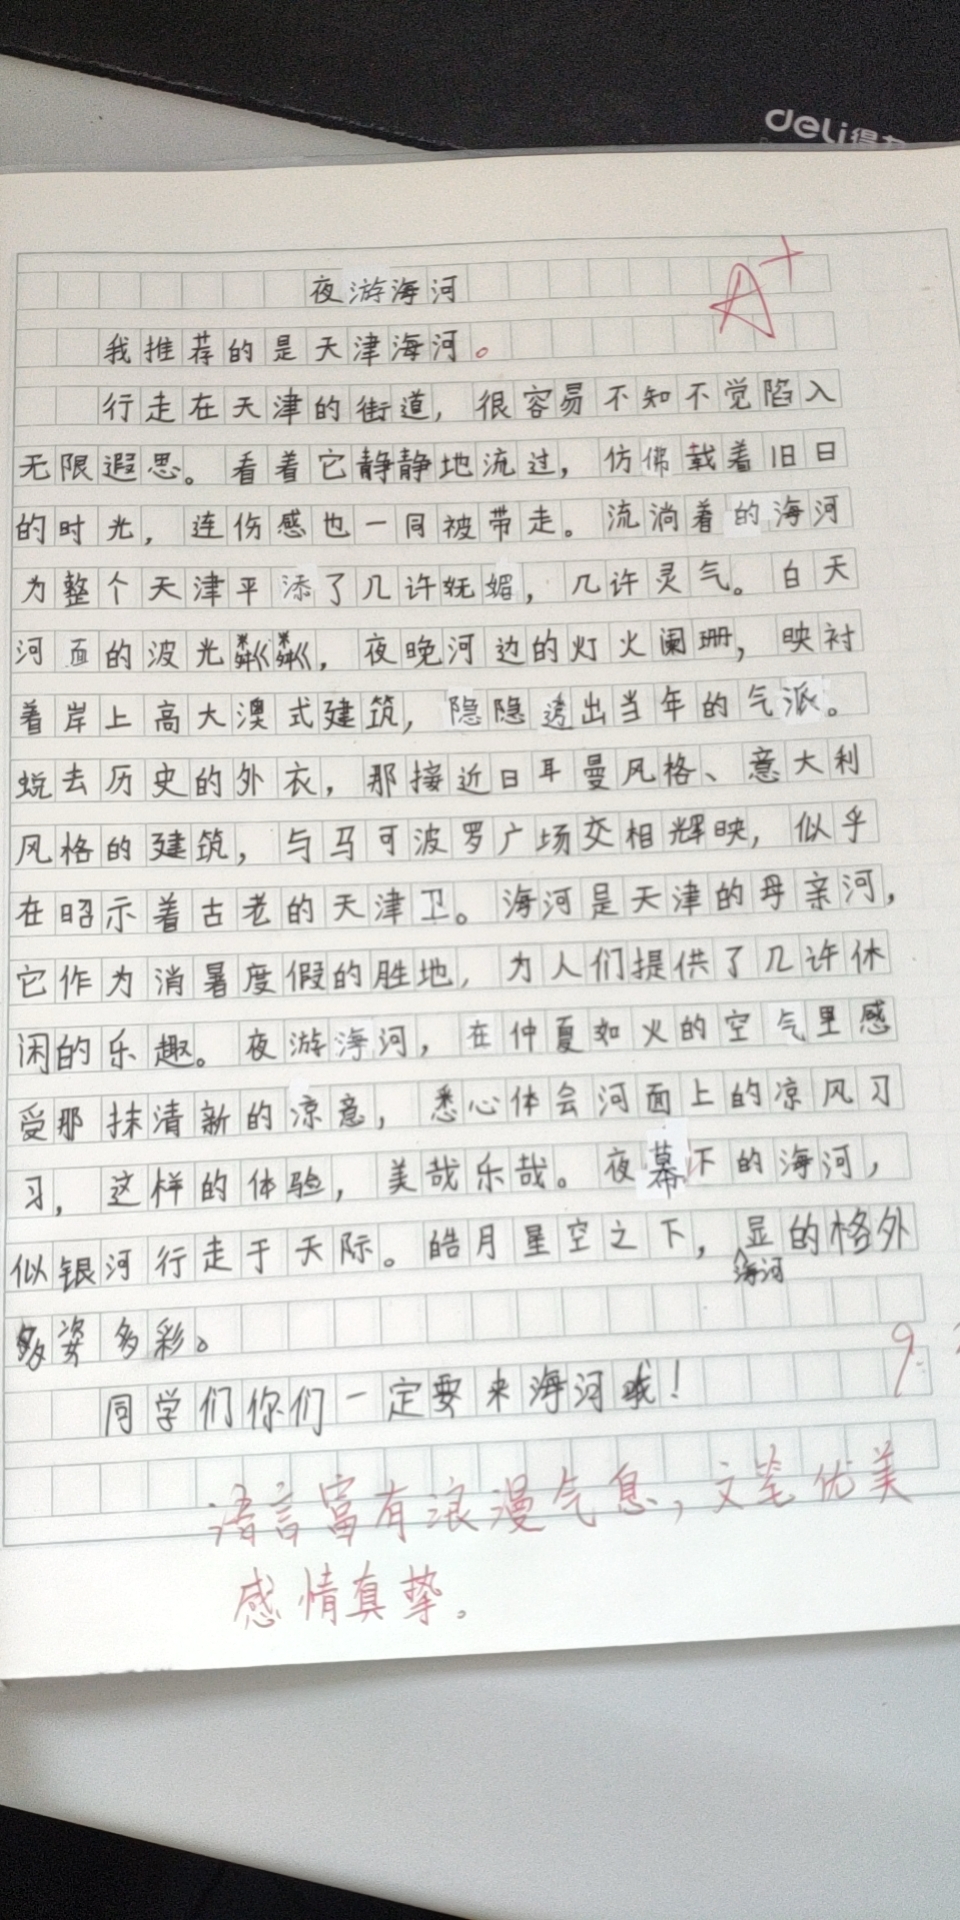 deli得力
夜游海河
A+
我推荐的是天津海河。
行走在天津的街道，很容易不知不觉陷入
无限遐思。看着它静静地流过，仿佛载着旧日
的时光，连伤感也一同被带走。流淌着的海河
为整个天津平添了几许妩媚，几许灵气。白天
河面的波光粼粼，夜晚河边的灯火阑珊，映衬
着岸上高大澳式建筑，隐隐透出当年的气派。
蜕去历史的外衣，那接近日耳曼风格、意大利
风格的建筑，与马可波罗广场交相辉映，似乎
在昭示着古老的天津卫。海河是天津的母亲河，
它作为消暑度假的胜地，为人们提供了几许休
闲的乐趣。夜游海河，在仲夏如火的空气里感
受那抹清新的凉意，悉心体会河面上的凉风习
习，这样的体验，美哉乐哉。夜幕下的海河，
似银河行走于天际。皓月星空之下，海河显的格外
多姿多彩。
同学们你们一定要来海河哦！
9.
语言富有浪漫气息，文笔优美
感情真挚。